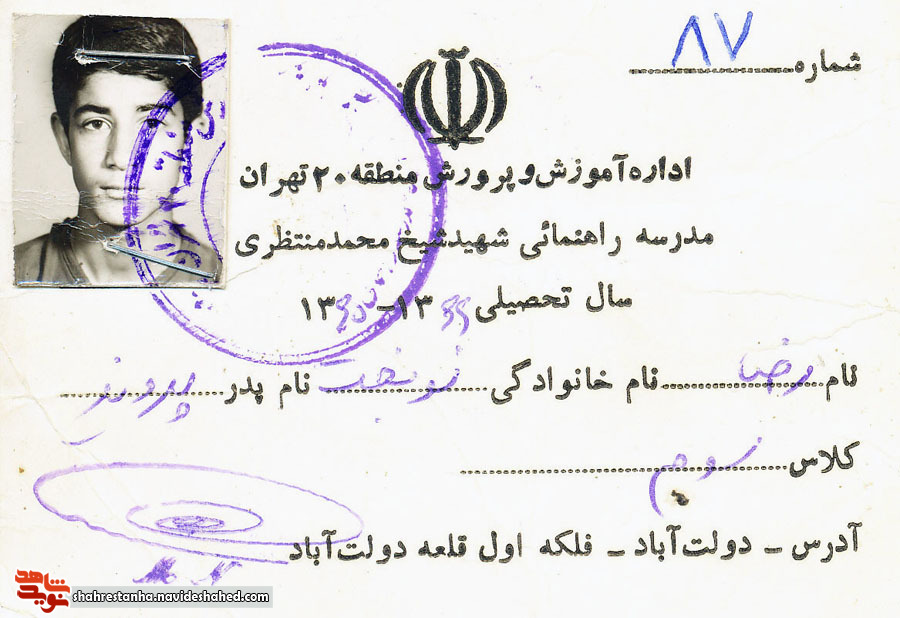 شماره ۸۷
اداره آموزش و پرورش منطقه ۲۰ تهران
مدرسه راهنمائی شهید شیخ محمد منتظری
سال تحصیلی ۱۳ - ۱۳
نام رضا نام خانوادگی نام پدر پرویز
کلاس
آدرس - دولت‌آباد - فلکه اول قلعه دولت‌آباد
شاهد
نوید
shahrestanha.navideshahed.com